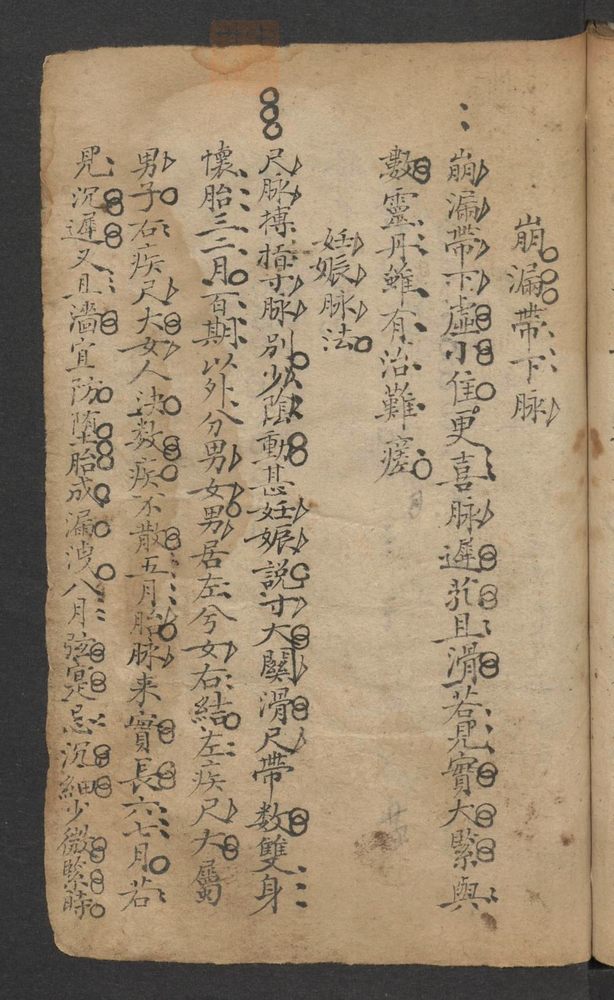 崩漏帶下脉
崩漏帶下虛小佳更喜脉遲芤且滑若見實大緊與
數靈丹雖有治難瘥
妊娠脉法
尺脉搏指寸脉別少陰動甚妊娠說寸大關滑尺帶数雙身
懷胎三二月百期以外分男女男居左兮女右結左疾尺大屬
男子右疾尺大女人決数疾不散五月胎脉来實長六七月若
見沉遲又且濇宜防墮胎成漏洩八月弦寔忌沉細少微緊時